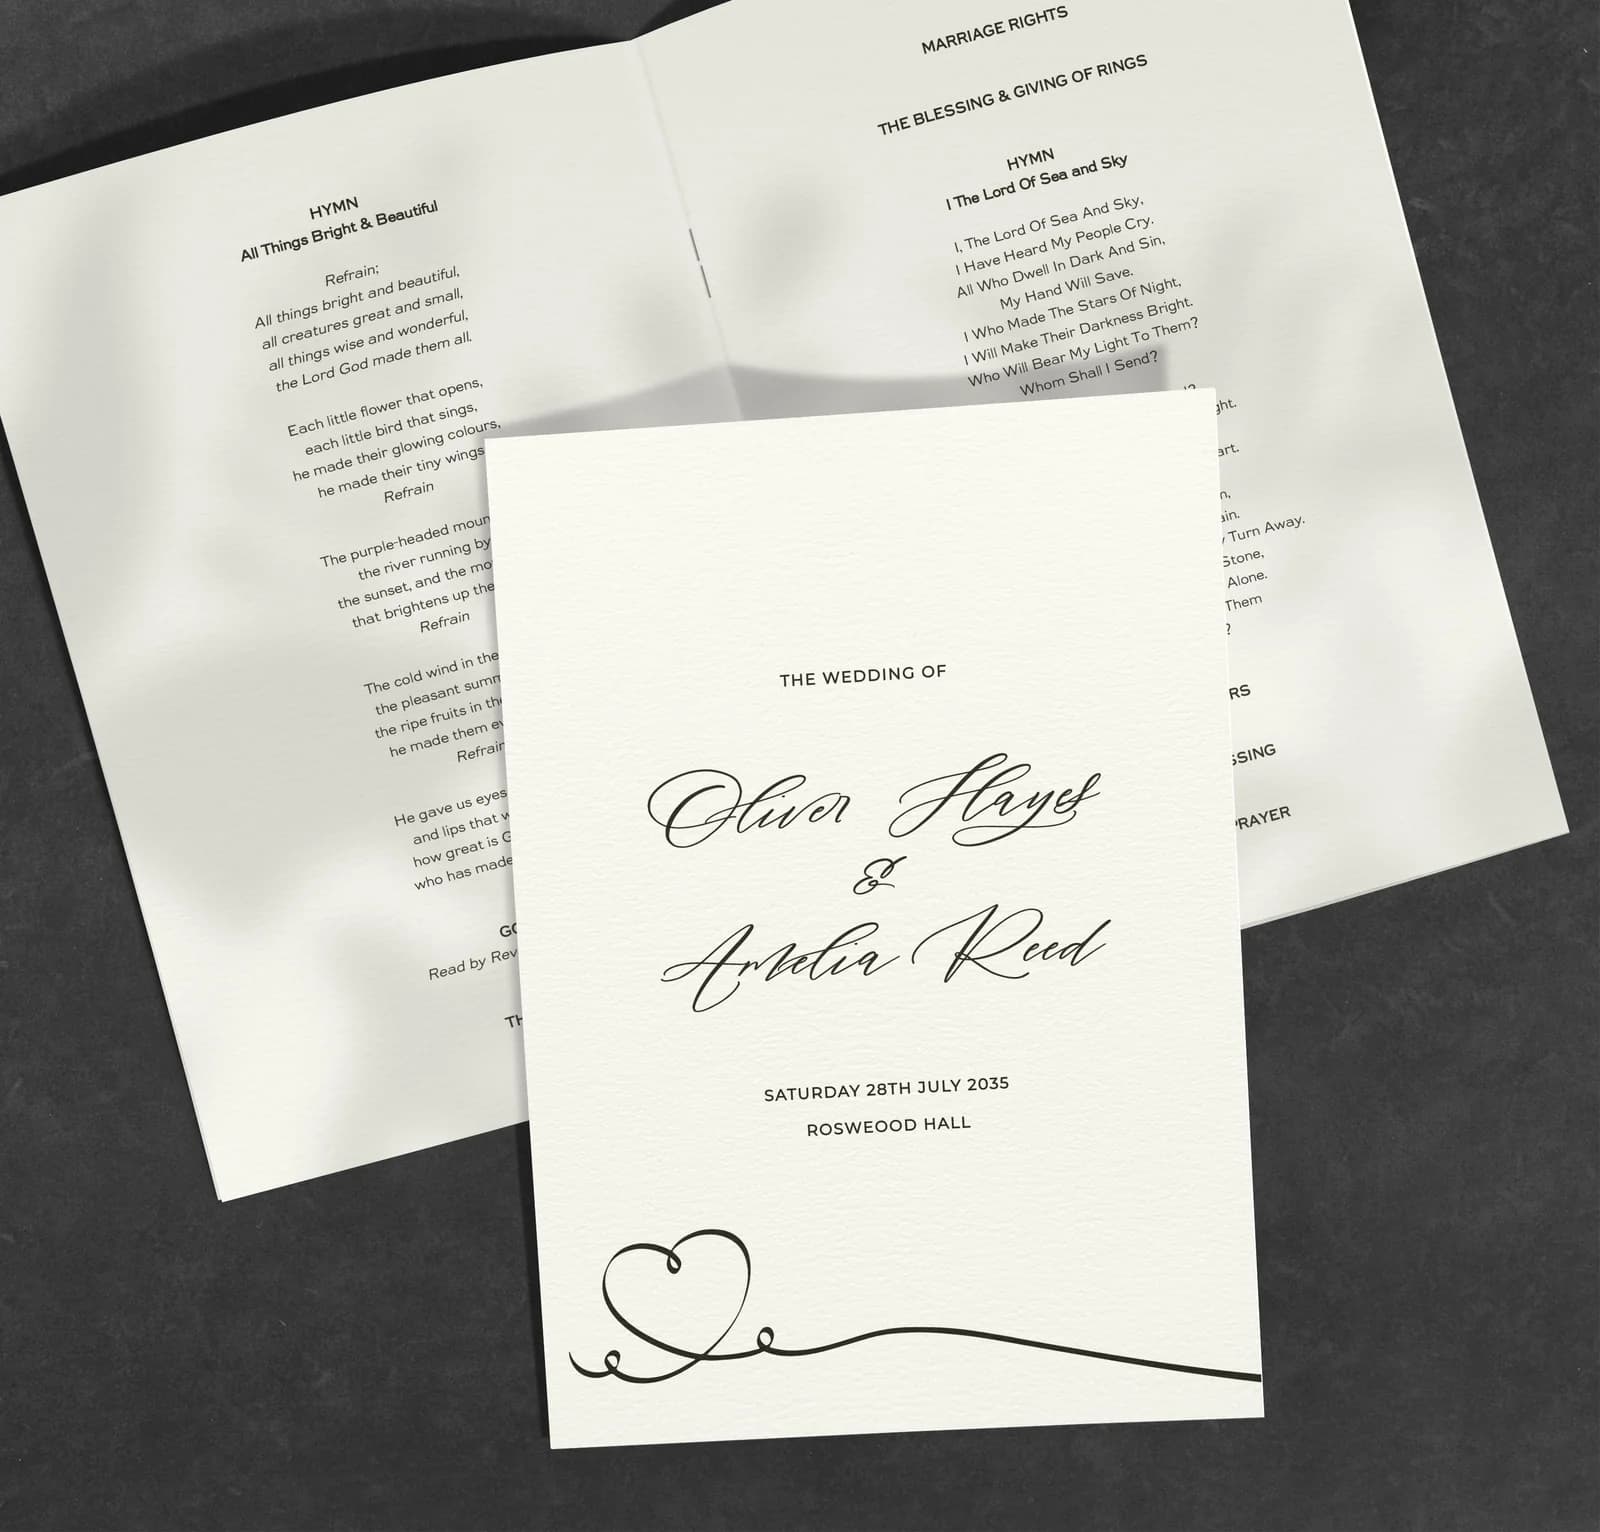 HYMN
All Things Bright & Beautiful
Refrain;
All things bright and beautiful,
all creatures great and small,
all things wise and wonderful,
the Lord God made them all.
Each little flower that opens,
each little bird that sings,
he made their glowing colours,
he made their tiny wings
Refrain
The purple-headed
the river running by
the sunset, and the
that brightens up the
Refrain
The cold wind in the
the pleasant
the ripe fruits in
he made them
Refrain
He gave us eyes
and lips that
how great is
who has made
Read by Rev
MARRIAGE RIGHTS
THE BLESSING & GIVING OF RINGS
HYMN
I The Lord Of Sea and Sky
I, The Lord Of Sea And Sky,
I Have Heard My People Cry.
All Who Dwell In Dark And Sin,
My Hand Will Save.
I Who Made The Stars Of Night,
I Will Make Their Darkness Bright.
Who Will Bear My Light To Them?
Whom Shall I Send?
Turn Away.
Stone,
Alone.
Them
?
PRAYER
THE WEDDING OF
Oliver Hayes
&
Amelia Reed
SATURDAY 28TH JULY 2035
ROSWEOOD HALL